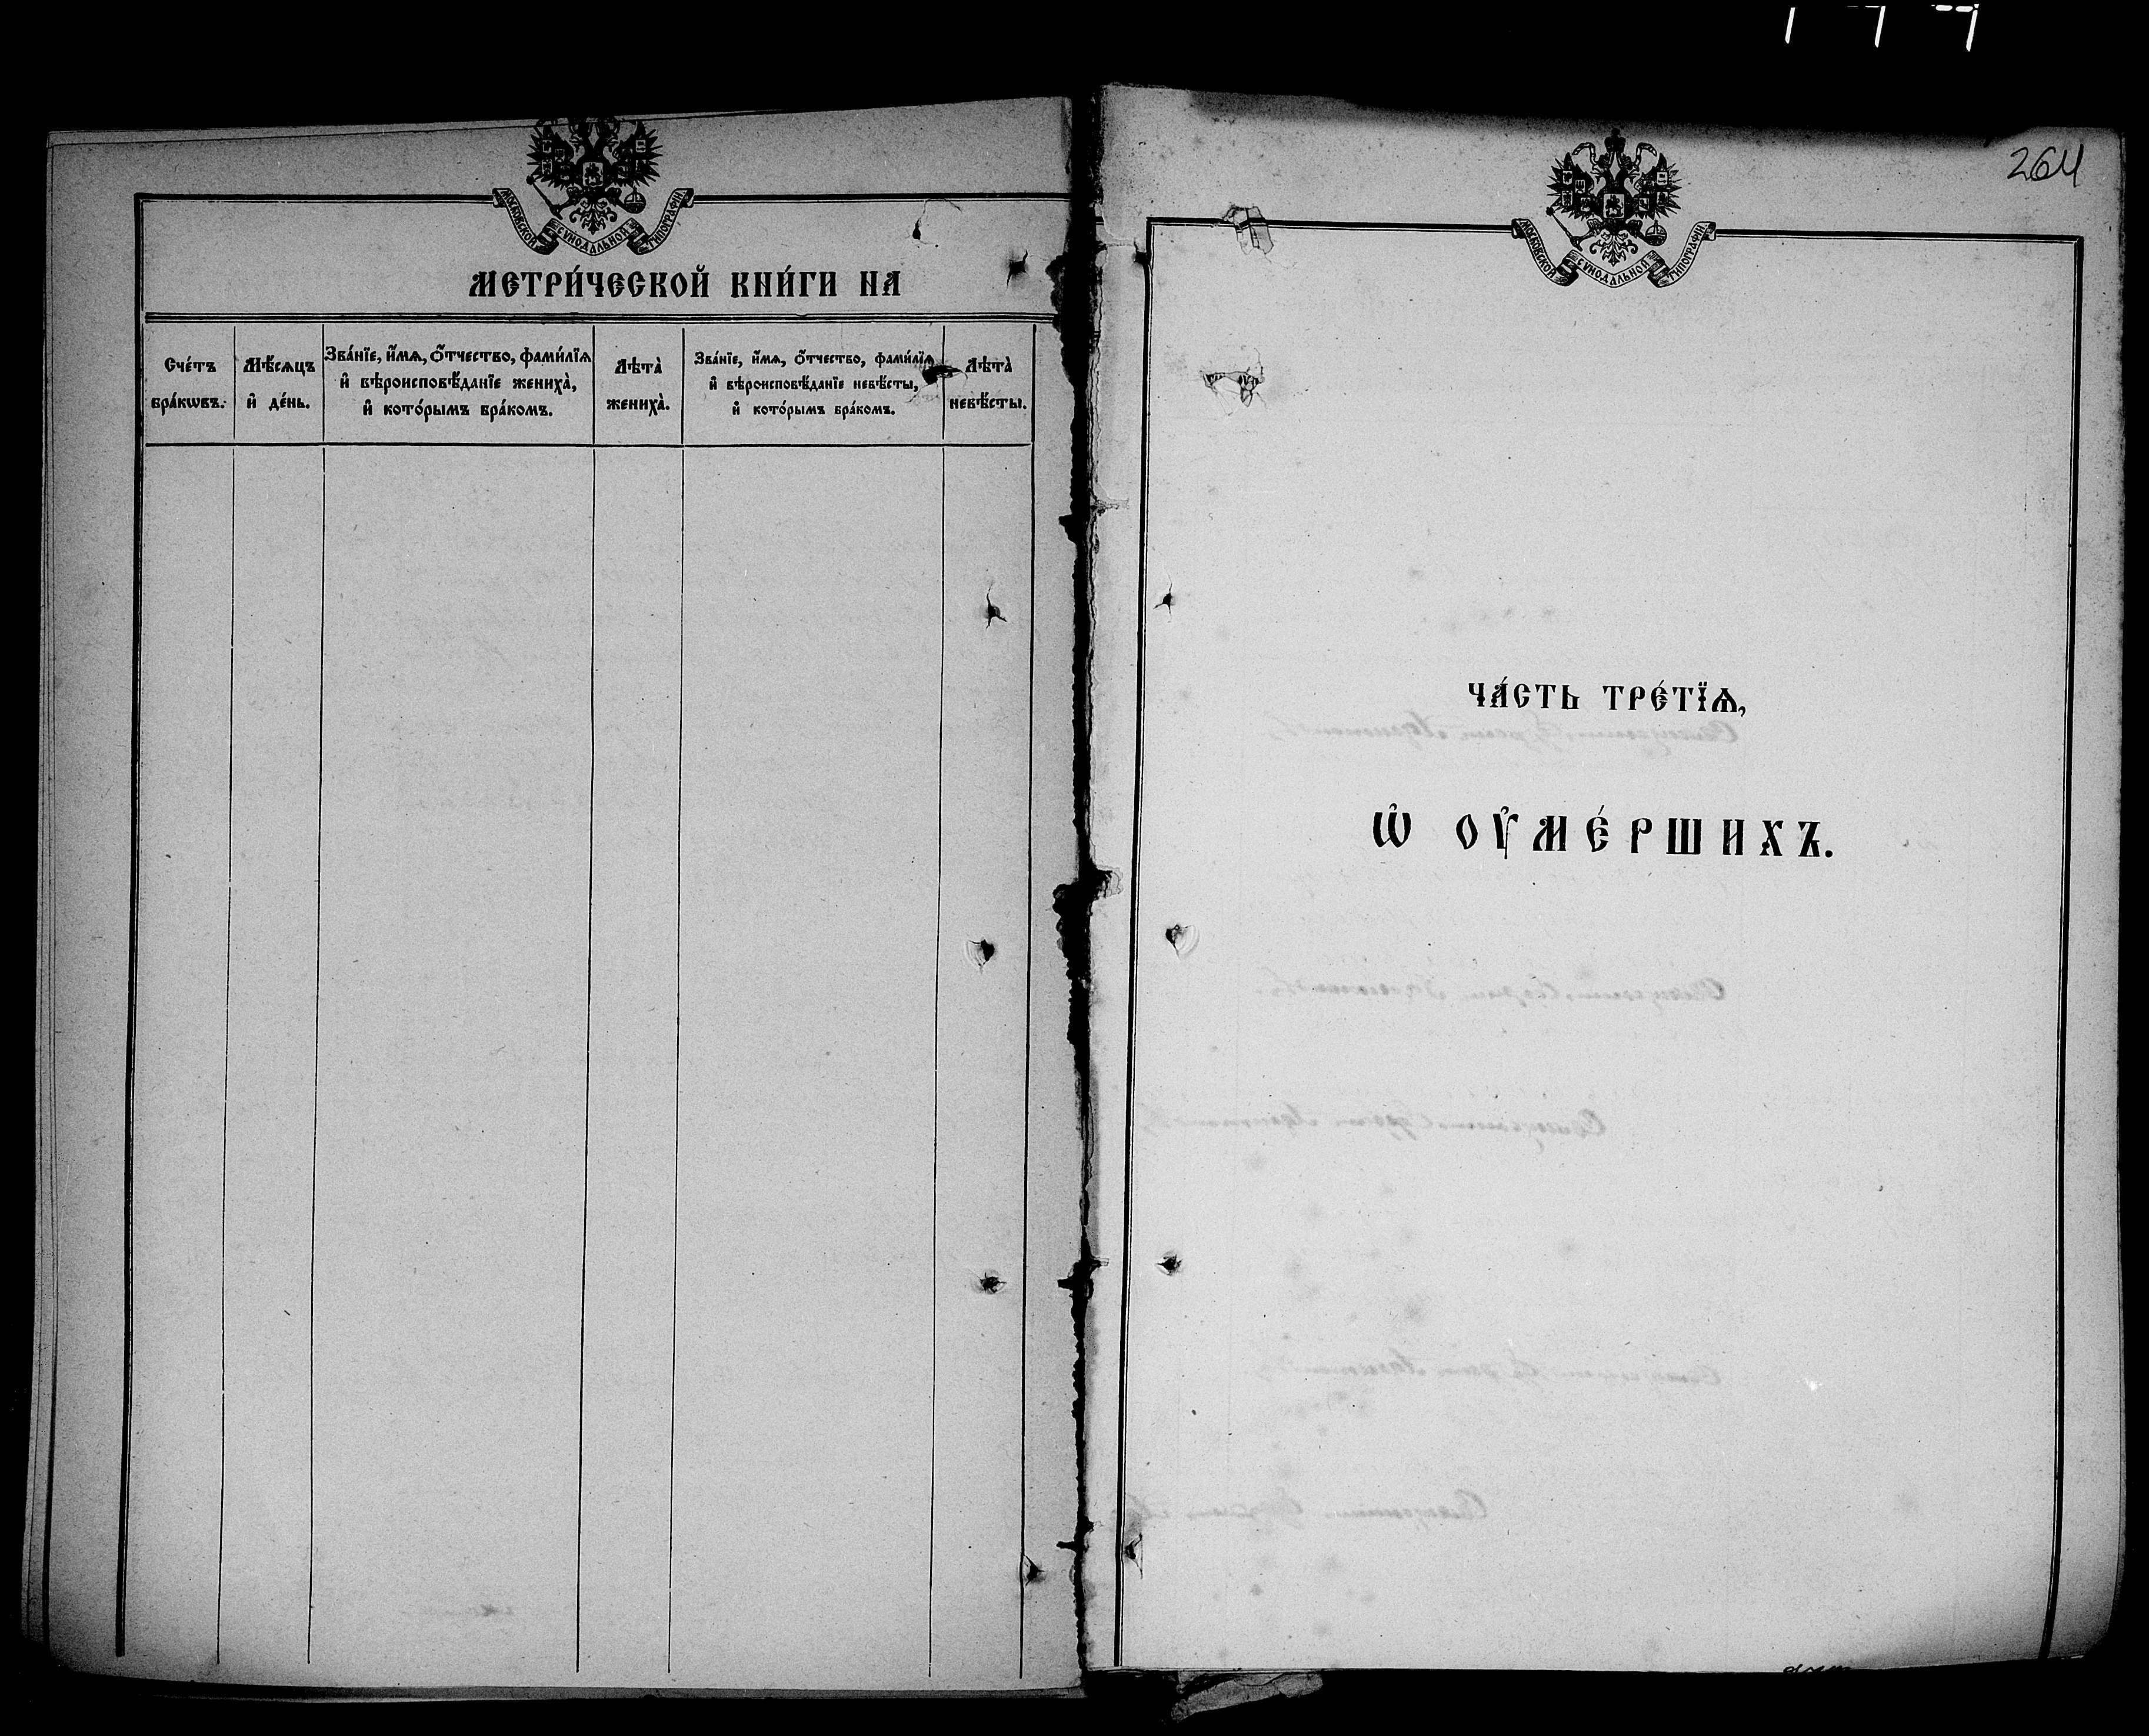 МОСКОВСКОЙ СѴНОДАЛЬНОЙ ТИПОГРАФІИ
МЕТРИ́ЧЕСКОЙ КНИ́ГИ НА
Сче́тъ
бра́кѡвъ.
Мѣ́сяцъ
и҆ де́нь.
Зва́нїе, и҆́мѧ, ѻ҆́тчество, фами́лїѧ
и҆ вѣроисповѣ́данїе жениха̀,
и҆ кото́рымъ бра́комъ.
Лѣта̀
жениха̀.
Зва́нїе, и҆́мѧ, ѻ҆́тчество, фами́лїѧ
и҆ вѣроисповѣ́данїе невѣ́сты,
и҆ кото́рымъ бра́комъ.
Лѣта̀
невѣ́сты.
264
МОСКОВСКОЙ СѴНОДАЛЬНОЙ ТИПОГРАФІИ
ЧА́СТЬ ТРЕ́ТЇѦ,
Ѡ҆ ОУ҆МЕ́РШИХЪ.